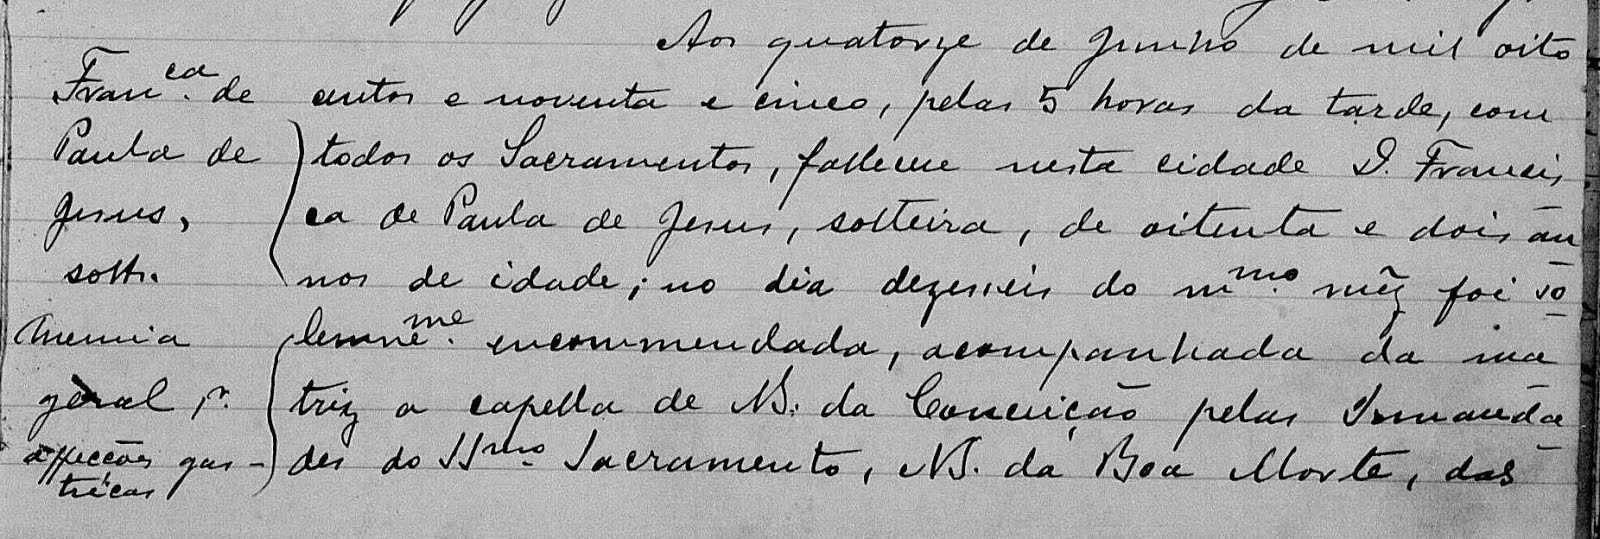 Aos quatorze de Junho de mil oito
Fran.ca de
Paula de
Jesus,
soltr.
Anemia
geral, pr.
affecções gas-
tricas
centos e noventa e cinco, pelas 5 horas da tarde, com
todos os Sacramentos, falleceu nesta cidade D. Francis
ca de Paula de Jesus, solteira, de oitenta e dois an
nos de idade; no dia dezesseis do m.mo mêz foi so
lemne.me encommendada, acompanhada da ma
triz a capella de N. S. da Conceição pelas Irmanda
des do SS.mo Sacramento, N. S. da Boa Morte, das